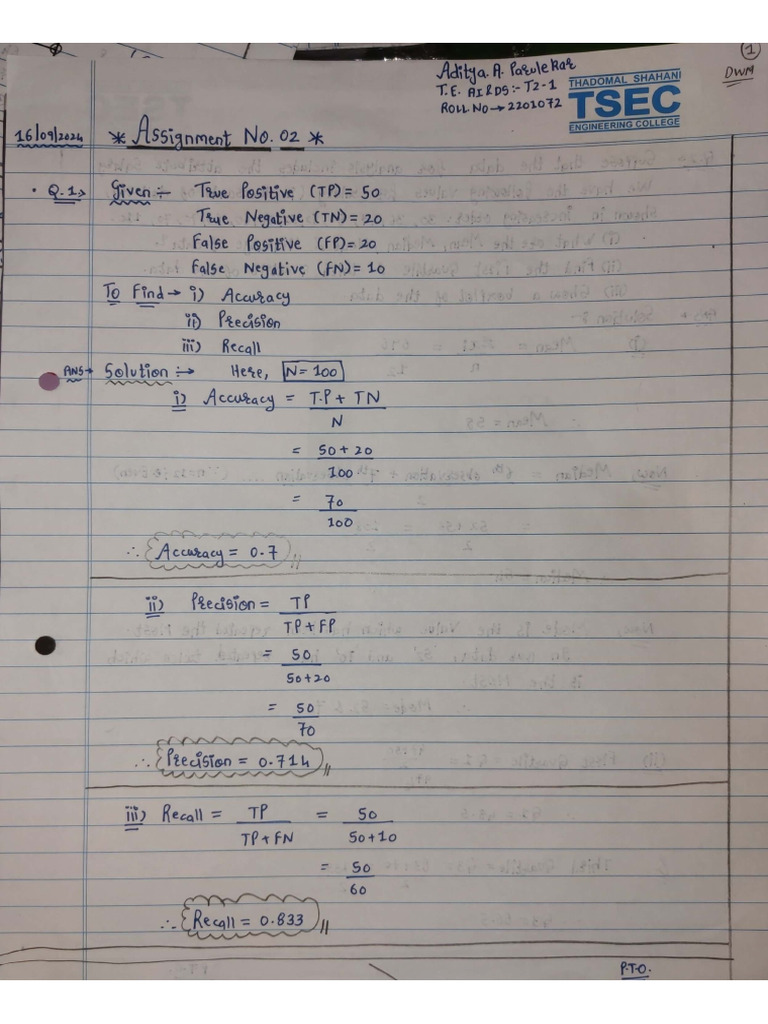 1
DWM
Aditya. A. Parulekar
T.E. AI&DS:- T2-1
ROLL NO→2201072
THADOMAL SHAHANI
TSEC
ENGINEERING COLLEGE
16/09/2024 * Assignment No. 02 *
• Q.1> Given :- True Positive (TP) = 50
True Negative (TN) = 20
False Positive (FP) = 20
False Negative (FN) = 10
To Find → i) Accuracy
ii) Precision
iii) Recall
ANS→ Solution :→ Here, N = 100
i) Accuracy = T.P + TN
N
= 50 + 20
100
= 70
100
∴ Accuracy = 0.7 //
ii) Precision = TP
TP + FP
= 50
50+20
= 50
70
∴ Precision = 0.714 //
iii) Recall = TP = 50
TP + FN 50+10
= 50
60
∴ Recall = 0.833 //
P.T.O.